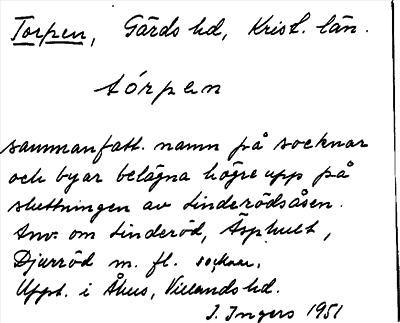 Torpen, Gärds hd, Krist. län.
tórpen
sammanfatt. namn på socknar
och byar belägna högre upp på
sluttningen av Linderödsåsen.
Anv. om Linderöd, Äsphult,
Djurröd m. fl. socknar.
Uppt. i Åhus, Villands hd.
I. Ingers 1951